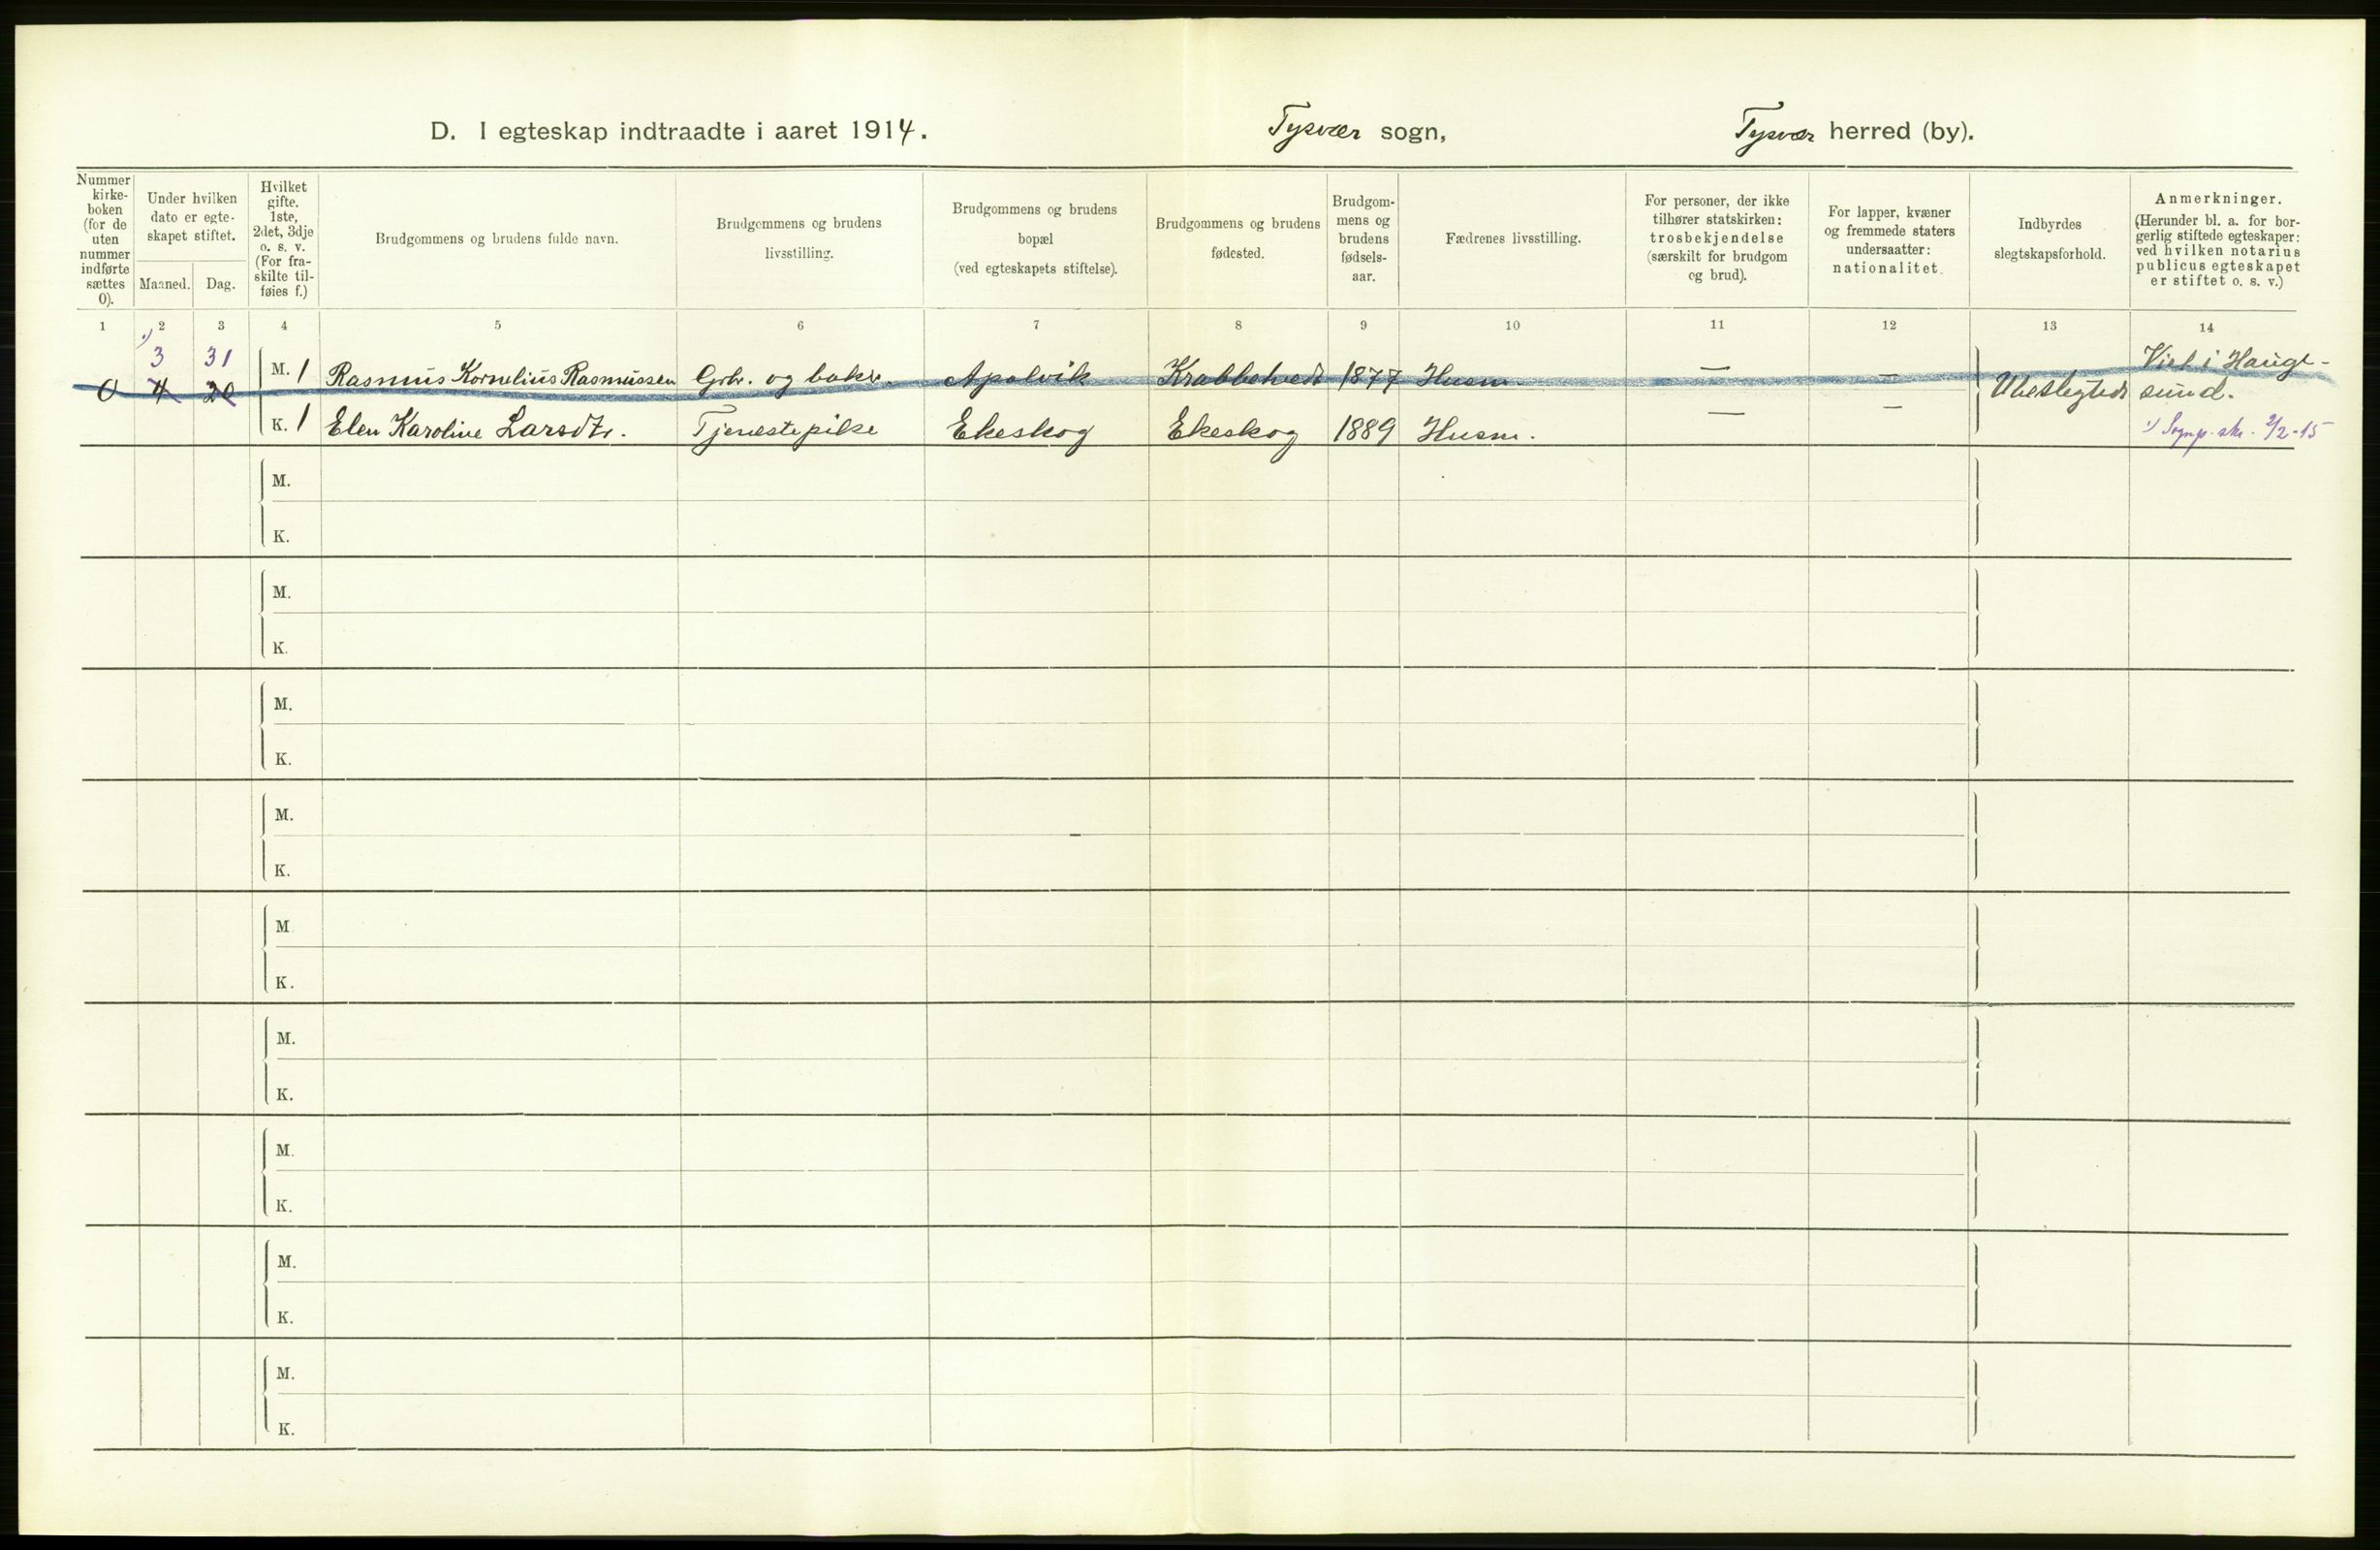 D. I egteskap indtraadte i aaret 1914. Tysvær sogn, Tysvær herred (by).
Nummer
kirke-
boken
(for de
uten
nummer
indførte
sættes
0).
Under hvilken
dato er egte-
skapet stiftet.
Maaned. Dag.
Hvilket
gifte.
1ste,
2det, 3dje
o. s. v.
(For fra-
skilte til-
føies f.)
Brudgommens og brudens fulde navn.
Brudgommens og brudens
livsstilling.
Brudgommens og brudens
bopæl
(ved egteskapets stiftelse).
Brudgommens og brudens
fødested.
Brudgom-
mens og
brudens
fødsels-
aar.
Fædrenes livsstilling.
For personer, der ikke
tilhører statskirken:
trosbekjendelse
(særskilt for brudgom
og brud).
For lapper, kvæner
og fremmede staters
undersaatter:
nationalitet.
Indbyrdes
slegtskapsforhold.
Anmerkninger.
(Herunder bl. a. for bor-
gerlig stiftede egteskaper:
ved hvilken notarius
publicus egteskapet
er stiftet o. s. v.)
1 2 3 4 5 6 7 8 9 10 11 12 13 14
1) 3 31
0 4 20 M. 1 Rasmus Kornelius Rasmussen Grbr. og Apalvik 1877 Husm. — — Ubeslegtede Viet i Hauge-
sund.
K. 1 Elen Karoline Larsdtr. Tjenestepike Ekeskog Ekeskog 1889 Husm. — —
1) Sognp. skr. 2/2-15
M.
K.
M.
K.
M.
K.
M.
K.
M
K.
M.
K.
M.
K.
M.
K.
M.
K.